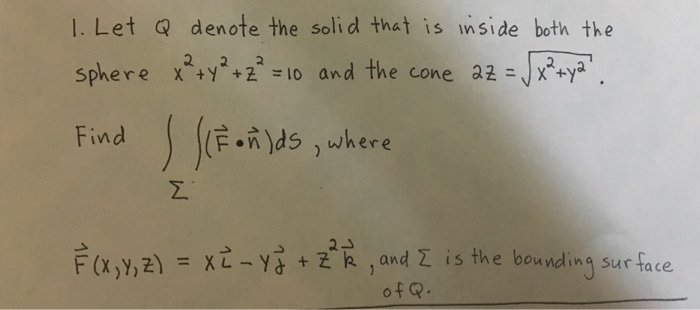 1. Let Q denote the solid that is inside both the
sphere x²+y²+z²=10 and the cone 2z = √(x²+y²).
Find ∫∫(F⃗•n⃗)ds, where
Σ
F⃗(x,y,z) = xi⃗ - yj⃗ + z²k⃗, and Σ is the bounding surface
of Q.